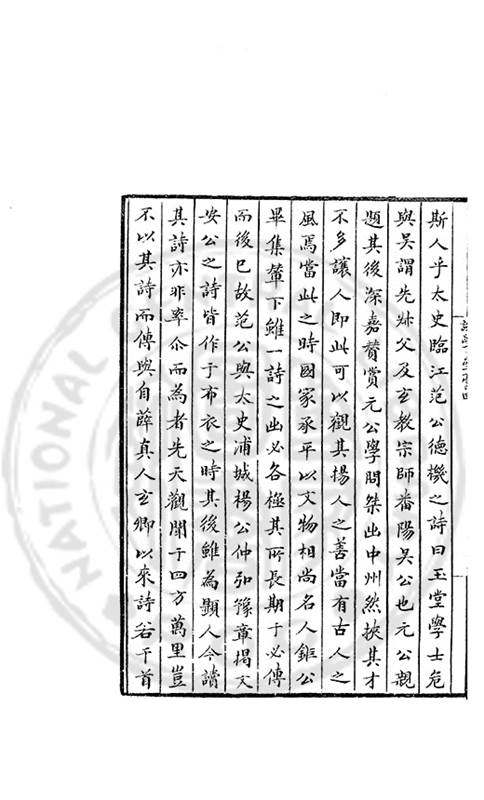 斯人乎太史臨江范公德機之詩曰玉堂學士危
與吳謂先叔父及玄教宗師番陽吳公也元公親
題其後深嘉贊賞元公學問桀出中州然挾其才
不多讓人即此可以觀其揚人之善當有古人之
風焉當此之時國家承平以文物相尚名人鉅公
畢集輦下雖一詩之出必各極其所長期于必傳
而後已故范公與太史浦城楊公仲弘豫章揭文
安公之詩皆作于布衣之時其後雖為顯人今讀
其詩亦非率尒而為者先天觀聞于四方萬里豈
不以其詩而傳與自薛真人玄卿以來詩若干首
NATIONAL